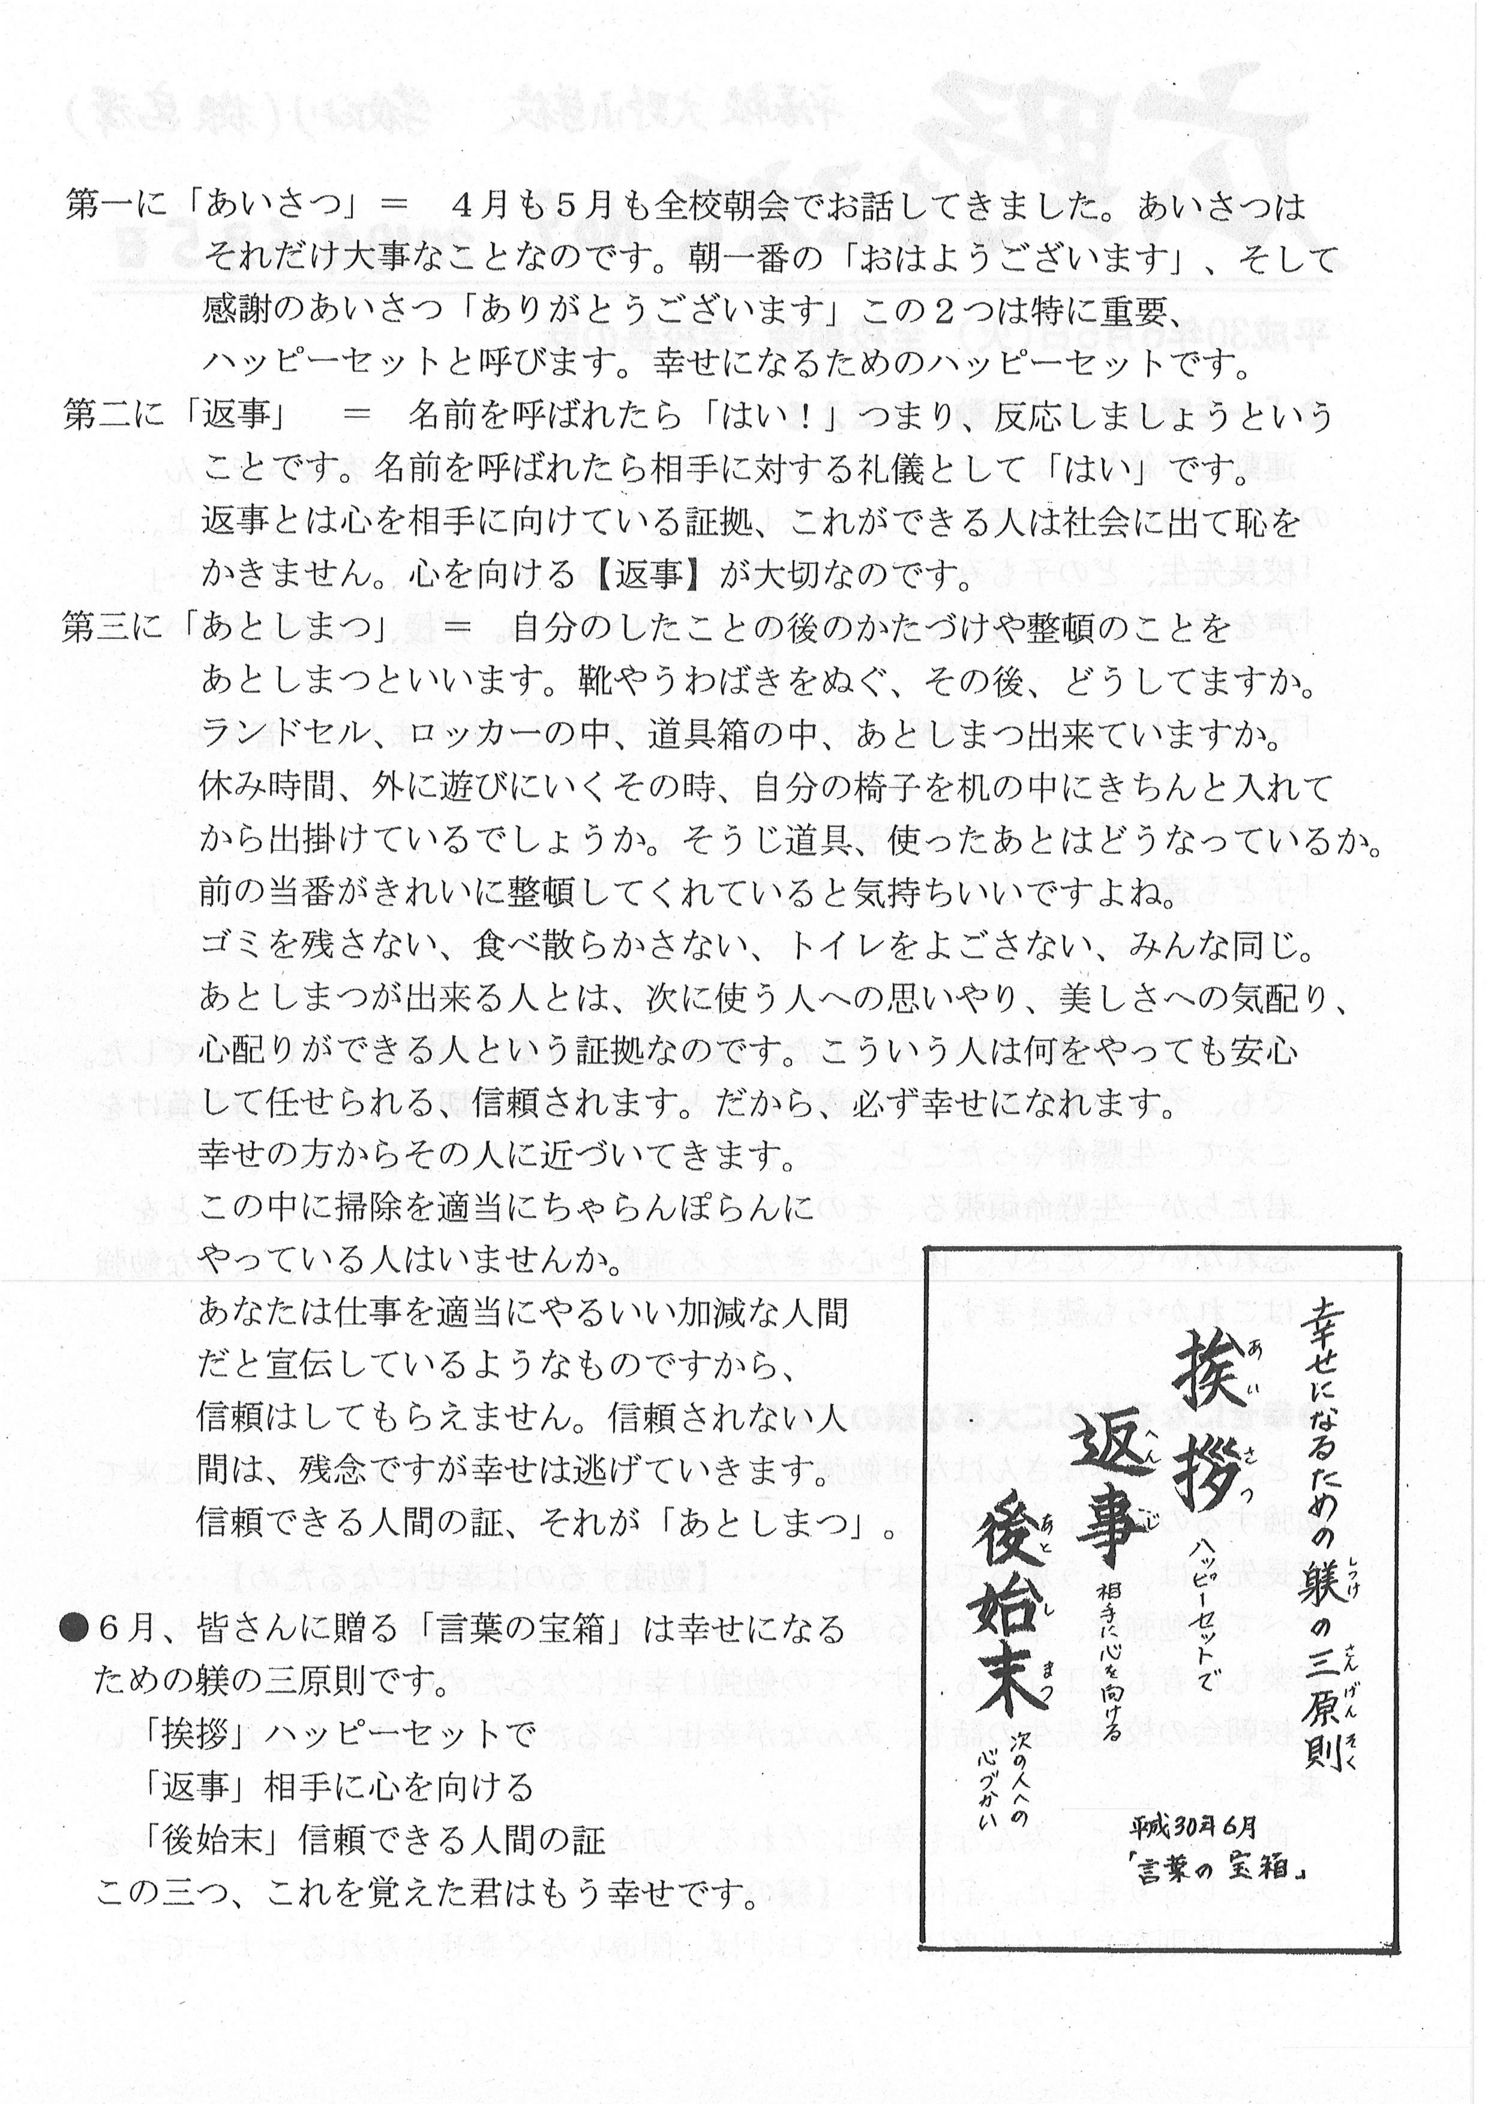 第一に「あいさつ」＝　４月も５月も全校朝会でお話してきました。あいさつは
それだけ大事なことなのです。朝一番の「おはようございます」、そして
感謝のあいさつ「ありがとうございます」この２つは特に重要、
ハッピーセットと呼びます。幸せになるためのハッピーセットです。
第二に「返事」　＝　名前を呼ばれたら「はい！」つまり、反応しましょうという
ことです。名前を呼ばれたら相手に対する礼儀として「はい」です。
返事とは心を相手に向けている証拠、これができる人は社会に出て恥を
かきません。心を向ける【返事】が大切なのです。
第三に「あとしまつ」　＝　自分のしたことの後のかたづけや整頓のことを
あとしまつといいます。靴やうわばきをぬぐ、その後、どうしてますか。
ランドセル、ロッカーの中、道具箱の中、あとしまつ出来ていますか。
休み時間、外に遊びにいくその時、自分の椅子を机の中にきちんと入れて
から出掛けているでしょうか。そうじ道具、使ったあとはどうなっているか。
前の当番がきれいに整頓してくれていると気持ちいいですよね。
ゴミを残さない、食べ散らかさない、トイレをよごさない、みんな同じ。
あとしまつが出来る人とは、次に使う人への思いやり、美しさへの気配り、
心配りができる人という証拠なのです。こういう人は何をやっても安心
して任せられる、信頼されます。だから、必ず幸せになれます。
幸せの方からその人に近づいてきます。
この中に掃除を適当にちゃらんぽらんに
やっている人はいませんか。
あなたは仕事を適当にやるいい加減な人間
だと宣伝しているようなものですから、
信頼はしてもらえません。信頼されない人
間は、残念ですが幸せは逃げていきます。
信頼できる人間の証、それが「あとしまつ」。
●６月、皆さんに贈る「言葉の宝箱」は幸せになる
ための躾の三原則です。
「挨拶」ハッピーセットで
「返事」相手に心を向ける
「後始末」信頼できる人間の証
この三つ、これを覚えた君はもう幸せです。
幸せになるための躾の三原則
しつけ
さんげんそく
挨拶
あいさつ
ハッピーセットで
返事
へんじ
相手に心を向ける
後始末
あとしまつ
次の人への
心づかい
平成30年6月
「言葉の宝箱」